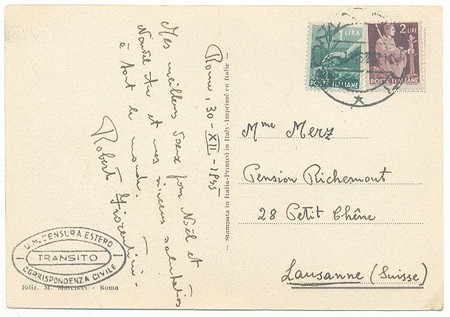 Rome, 30-XII-1945
Mes meilleurs vœux pour Noël et
Nouvel An et mes sincères salutations
à tout le monde.
Robert
Stampata in Italia-Printed in Italy-Imprimé en Italie
LIRA
POSTE ITALIANE
2 LIRE
POSTE ITALIANE
Mme Merz
Pension Richemont
28 Petit Chêne
Lausanne (Suisse)
U.M. CENSURA ESTERO
TRANSITO
CORRISPONDENZA CIVILE
Ediz. M. Marcucci - Roma